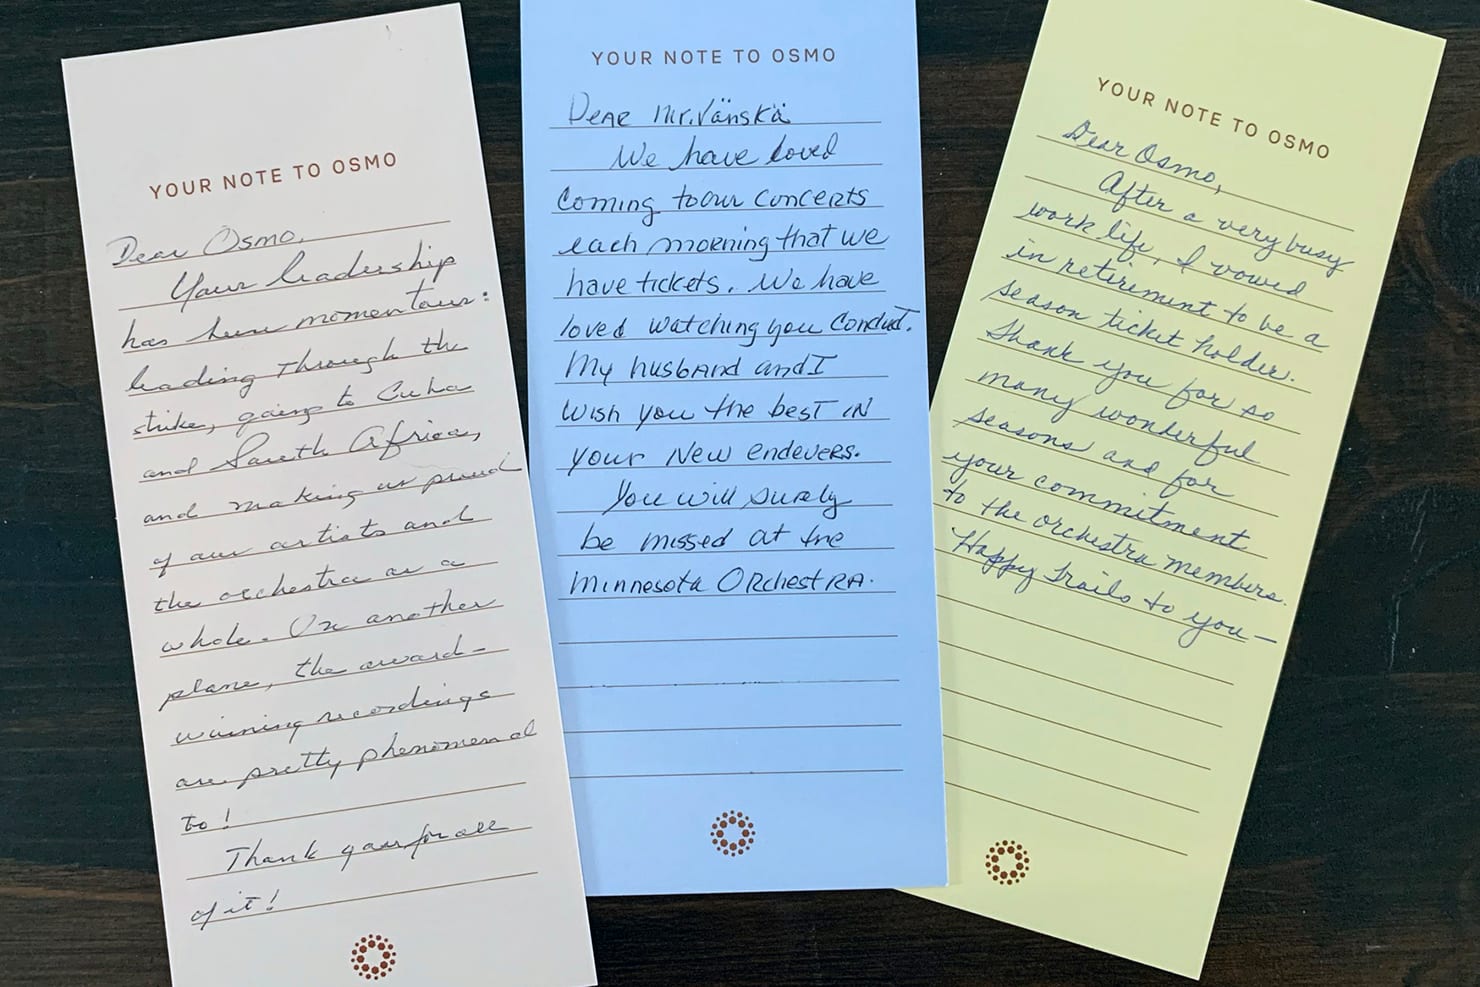 YOUR NOTE TO OSMO
Dear Osmo,
Your leadership
has been momentous:
leading through the
strike, going to Cuba
and South Africa,
and making us proud
of our artists and
the orchestra as a
whole. On another
plane, the award-
winning recordings
are pretty phenomenal
to!
Thank you for all
of it!
YOUR NOTE TO OSMO
Dear Mr. Vänskä
We have loved
coming to our concerts
each morning that we
have tickets. We have
loved watching you conduct.
My husband and I
wish you the best in
your new endevers.
You will surely
be missed at the
Minnesota Orchestra.
YOUR NOTE TO OSMO
Dear Osmo,
After a very busy
work life, I vowed
in retirement to be a
season ticket holder.
Thank you for so
many wonderful
seasons and for
your commitment
to the orchestra members.
Happy Trails to you—